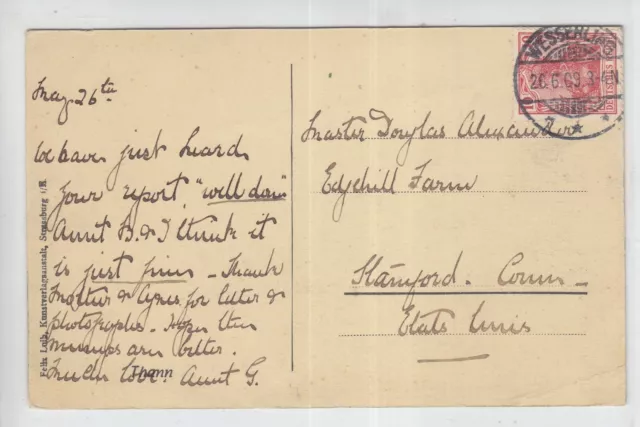 May 26th
We have just heard
your report, "well done"
Aunt B. & I think it
is just fine - Thank
Mother & Agnes for letter &
photographs - Hope the
mumps are better.
Much love. Aunt G.
Thann
Felix Luib, Kunstverlagsanstalt, Strassburg i/E.
WESSERLING
26.6.09.3-4N
DEUTSCHES
10
Master Douglas Alexander
Edgehill Farm
Stamford. Conn -
Etats Unis